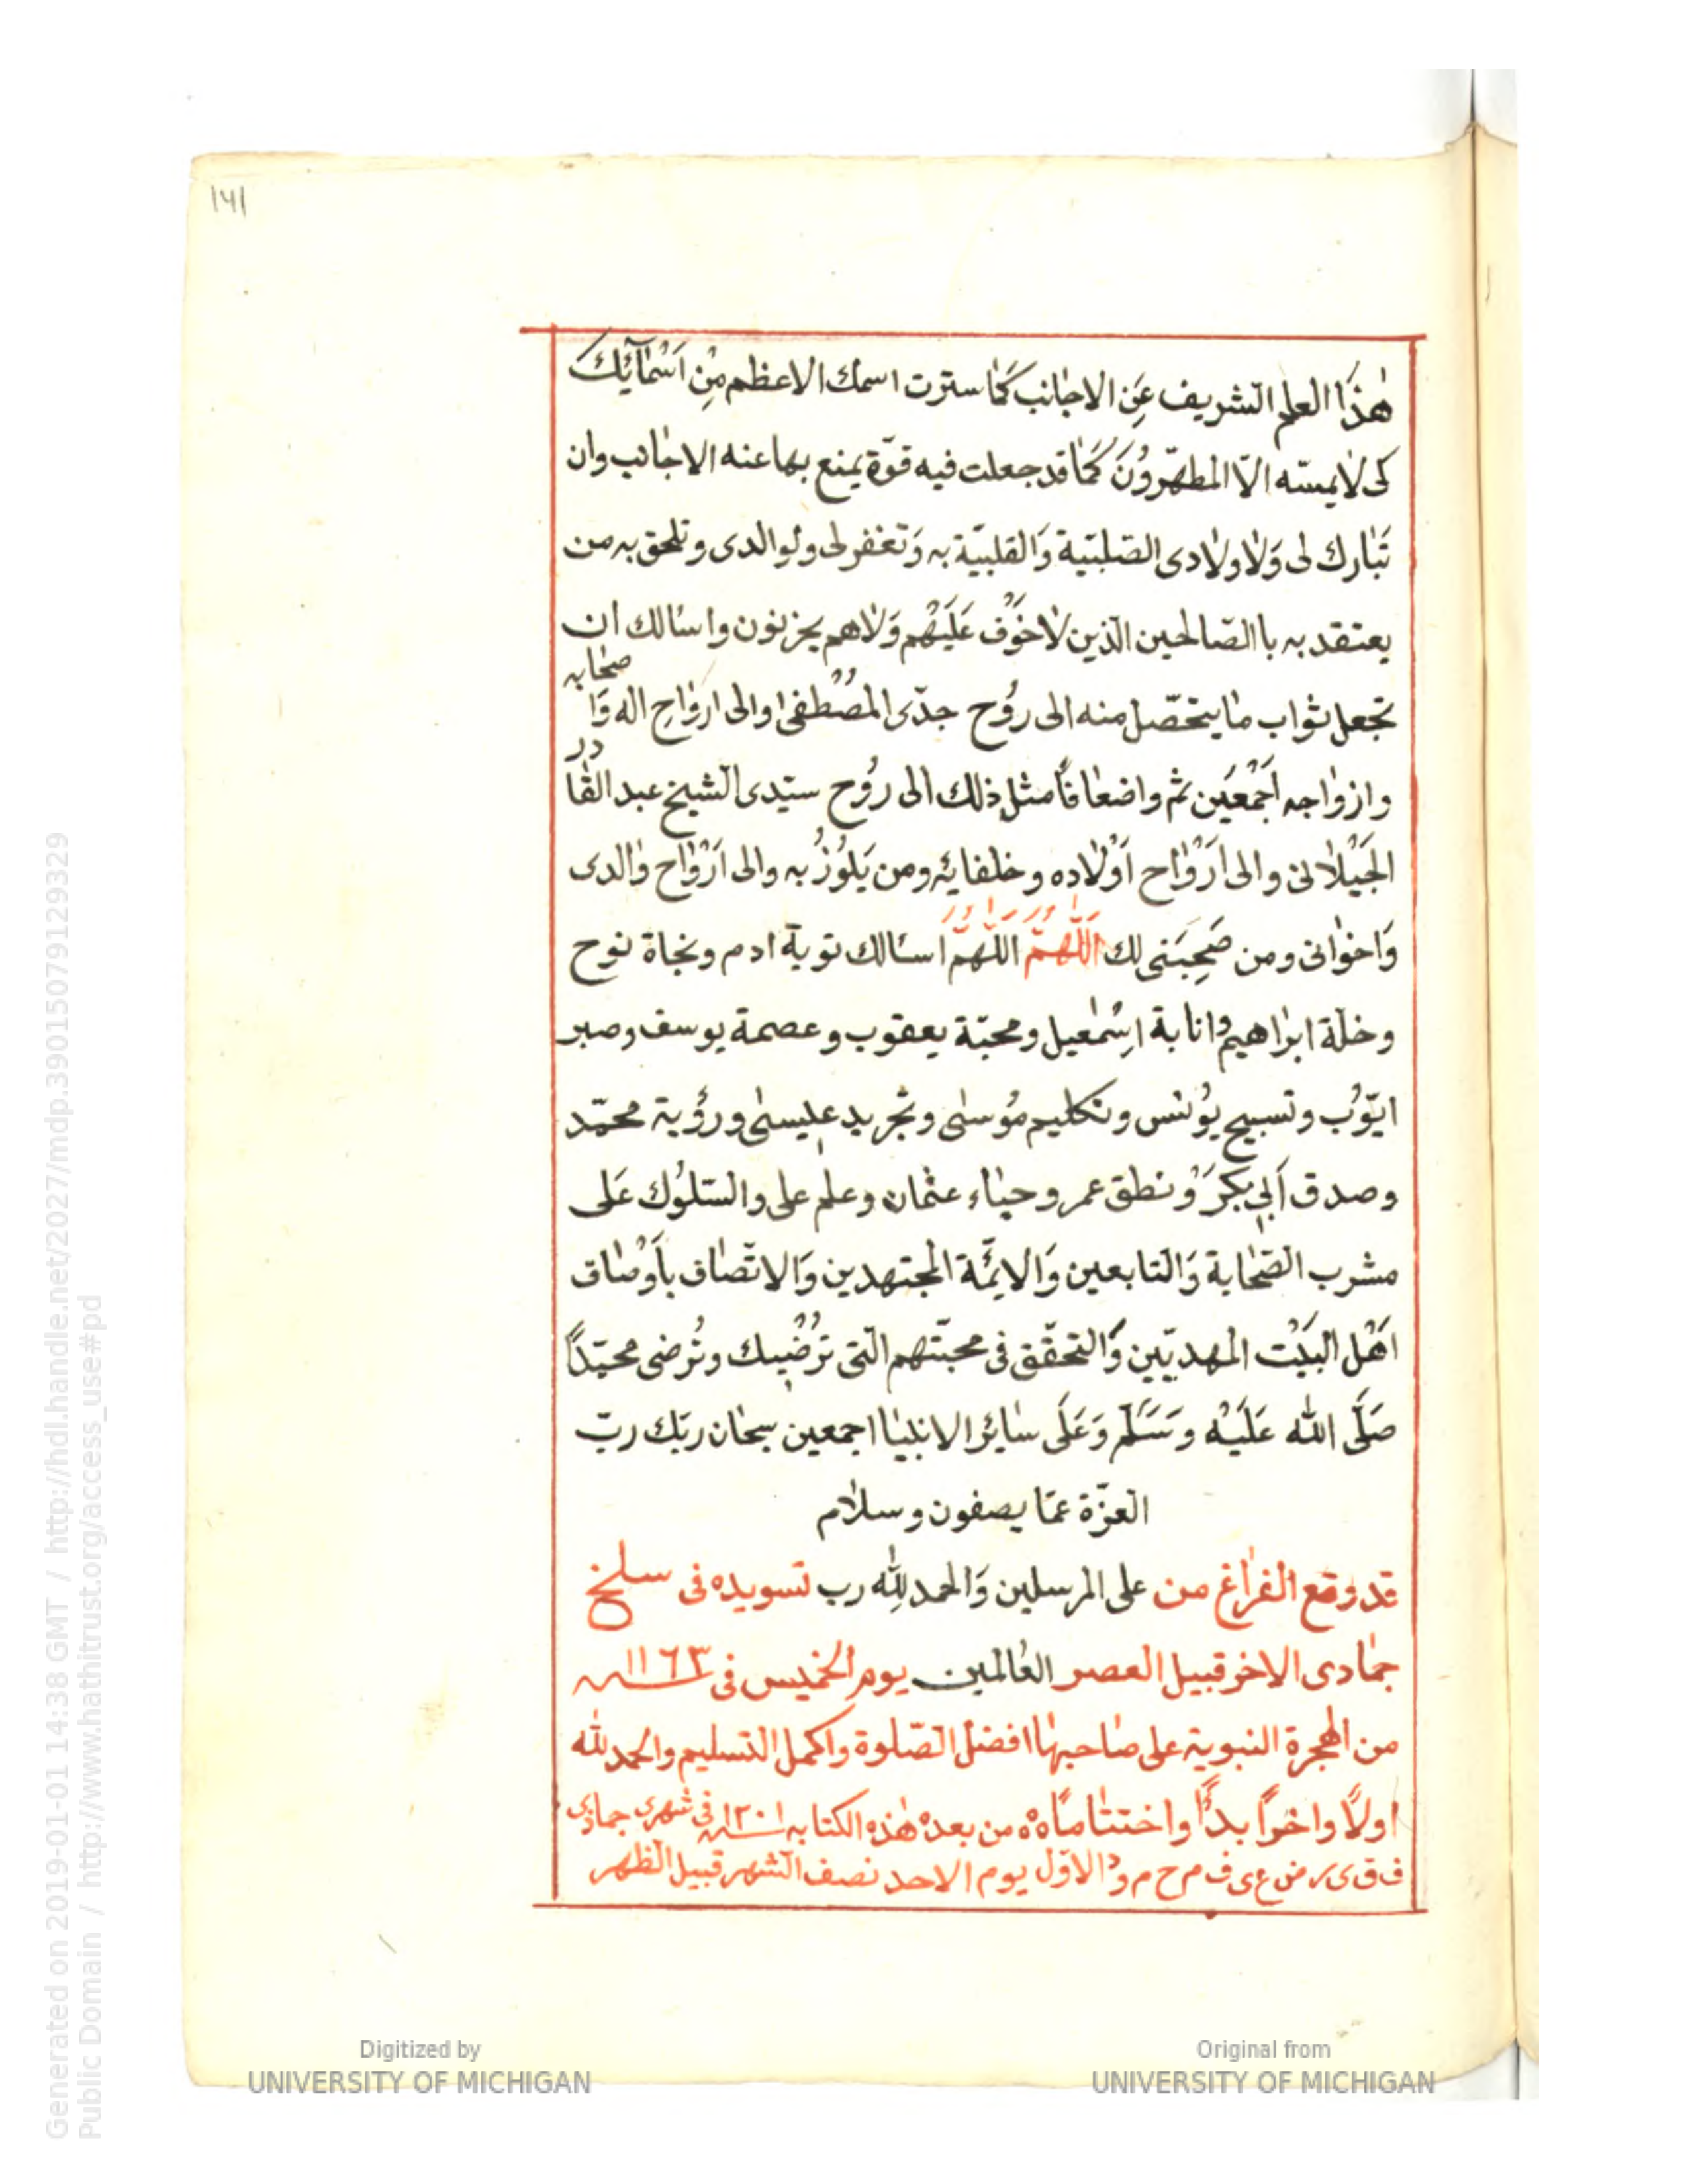 ١٧١
هٰذَا العلم الشريف عَنِ الاجانب كَمَا سترت اسمك الاعظم مِنْ اَسْمَآئِكَ
كى لا يمسّه الّا المطهّروُنَ كَمَا قد جعلت فيه قوّة يمنع بها عنه الاجانب وان
تَبارك لى وَلاولادى الصّلبيّة وَالقلبيّة به وَتغفر لى ولوالدى وتلحق به من
يعتقد به باالصّالحين الّذين لاخوْف عَلَيْهم وَلاهم يحزنون واسالك ان
تجعل ثواب ما يتحصّل منه الى روُح جدّى المصْطفى والى ارواحِ اله وَاصحابه
وازواجه اَجْمَعَين ثم واضعافاً مثل ذلك الى روُح سيّدى الشيخ عبد القادر
الجَيْلانى والى ارَوْاح اَوْلاده وخلفائه ومن يَلوُذُ به والى ارَوْاح والدى
وَاخوانى ومن صَحِبَنى لك اَللّٰهُمَّ اللّهمّ اسالك توبة ادم ونجاة نوح
وخلّة ابراهيم وانابة اسْمٰعيل ومحبّة يعقوب وعصمة يوسف وصبر
ايّوُب وتسبيح يوُنس وتكليم موُسٰى وتجريد عيسٰى ورؤية محمّد
وصدق اَبى بكر وَنطق عمر وحياء عثمان وعلم على والسّلوُك عَلى
مشرب الصّحابة وَالتابعين وَالائمّة المجتهدين وَالاتّصاف باَوْصاف
اَهْل البَيْت المهديّين وَالتحقّق فى محبّتهم الّتى تُرْضيك وتُرضى محمّداً
صَلَّى الله عَلَيْه وَسَلَّم وَعَلَى سَائر الانبيا اجمعين سبحان ربّك ربّ
العزّة عمّا يصفون وسلام
قد وقع الفراغ من على المرسلين وَالحمد لِلّه رب تسويده فى سلخ
جمادى الاخر قبيل العصر العالمين يوم الخميس فى ١١٦٣ سنه
من الهجرة النبوية على صاحبها افضل الصّلوة واكمل التسليم والحمد للّه
اولاً واخراً بدأً واختتاماً ٥٥ من بعده هٰذه الكتابه ١٢٠١ سنه فى شهرى جمادى
ف ق ى ر ض ع ى ف م ح م ود الاوّل يوم الاحد نصف الشهر قبيل الظهر
Digitized by
UNIVERSITY OF MICHIGAN
Original from
UNIVERSITY OF MICHIGAN
Generated on 2019-01-01 14:38 GMT / http://hdl.handle.net/2027/mdp.39015079129329
Public Domain / http://www.hathitrust.org/access_use#pd